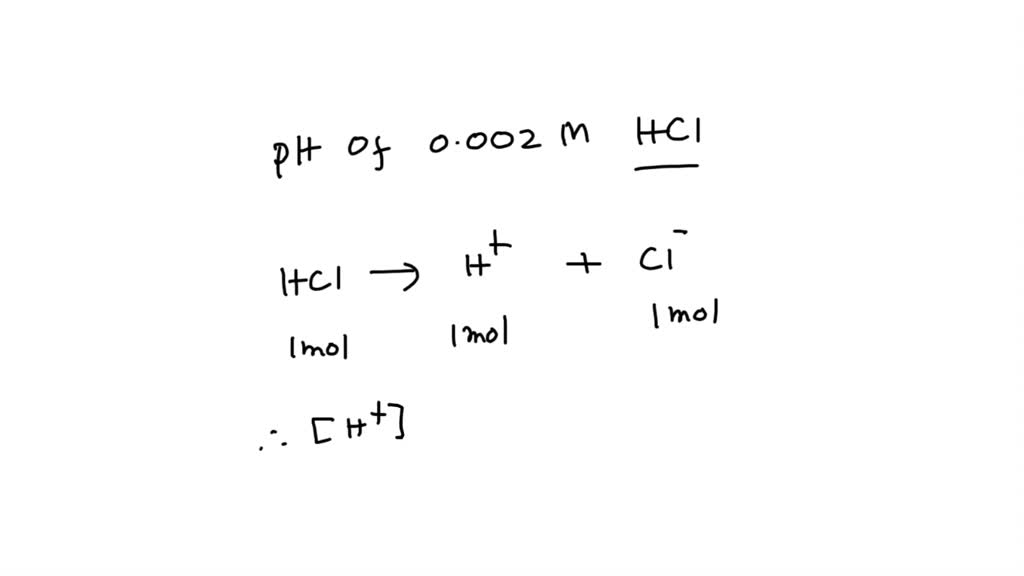 pH of 0.002 M HCl
HCl → H⁺ + Cl⁻
1mol 1mol 1mol
∴ [H⁺]